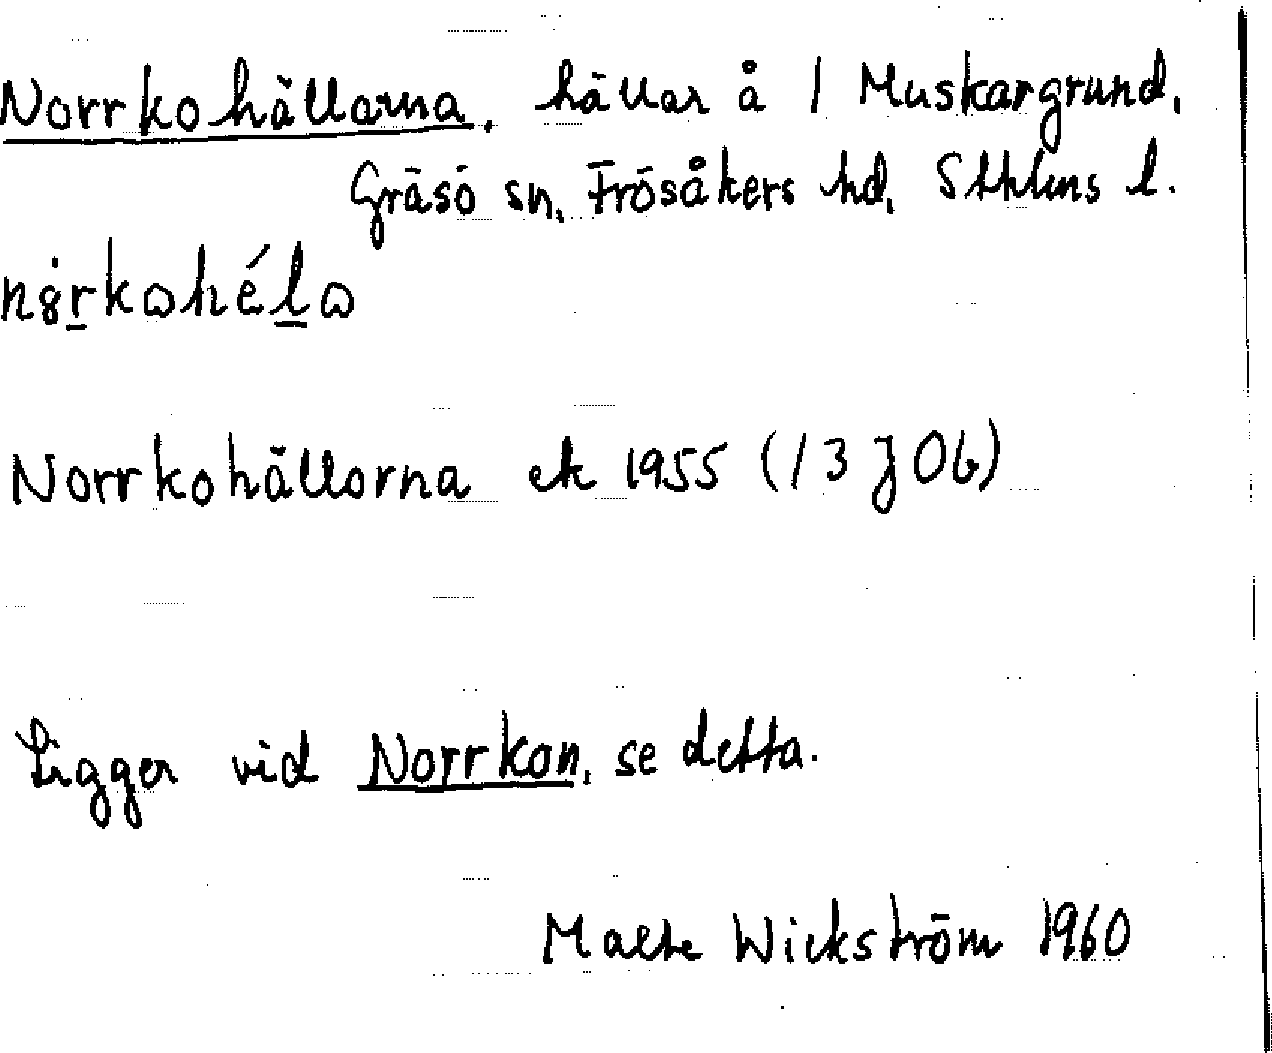 Norrkohällarna, hällar å 1 Muskargrund,
Gräsö sn, Frösåkers hd, Sthlms l.
Norrkohällorna ek 1955 (13 J 0b)
Ligger vid Norrkon, se detta.
Malte Wickström 1960